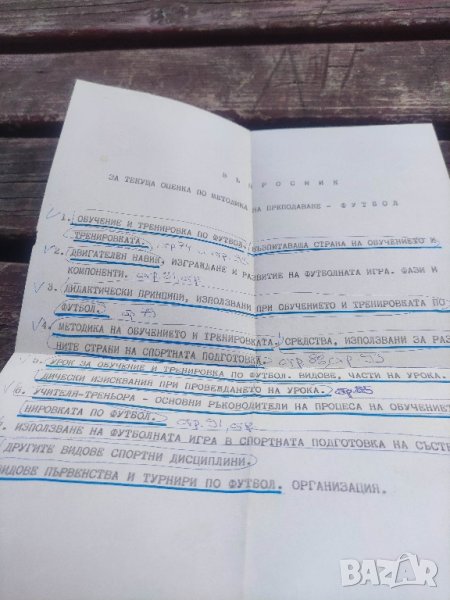 ВЪПРОСНИК
ЗА ТЕКУЩА ОЦЕНКА ПО МЕТОДИКА НА ПРЕПОДАВАНЕ - ФУТБОЛ
1. ОБУЧЕНИЕ И ТРЕНИРОВКА ПО ФУТБОЛ. ВЪЗПИТАВАЩА СТРАНА НА ОБУЧЕНИЕТО И
ТРЕНИРОВКАТА. стр 74
2. ДВИГАТЕЛЕН НАВИК, ИЗГРАЖДАНЕ И РАЗВИТИЕ НА ФУТБОЛНАТА ИГРА. ФАЗИ И
КОМПОНЕНТИ. стр. 91,
3. ДИДАКТИЧЕСКИ ПРИНЦИПИ, ИЗПОЛЗВАНИ ПРИ ОБУЧЕНИЕТО И ТРЕНИРОВКАТА ПО
ФУТБОЛ. стр 79
4. МЕТОДИКА НА ОБУЧЕНИЕТО И ТРЕНИРОВКАТА. СРЕДСТВА, ИЗПОЛЗВАНИ ЗА РАЗ
НИТЕ СТРАНИ НА СПОРТНАТА ПОДГОТОВКА. стр 88 стр 93
5. УРОК ЗА ОБУЧЕНИЕ И ТРЕНИРОВКА ПО ФУТБОЛ. ВИДОВЕ, ЧАСТИ НА УРОКА.
ДИЧЕСКИ ИЗИСКВАНИЯ ПРИ ПРОВЕЖДАНЕТО НА УРОКА.
6. УЧИТЕЛЯ-ТРЕНЬОРА - ОСНОВНИ РЪКОВОДИТЕЛИ НА ПРОЦЕСА НА ОБУЧЕНИЕТО
НИРОВКАТА ПО ФУТБОЛ. стр. 91, стр
ИЗПОЛЗВАНЕ НА ФУТБОЛНАТА ИГРА В СПОРТНАТА ПОДГОТОВКА НА СЪСТЕ
ДРУГИТЕ ВИДОВЕ СПОРТНИ ДИСЦИПЛИНИ.
ВИДОВЕ ПЪРВЕНСТВА И ТУРНИРИ ПО ФУТБОЛ. ОРГАНИЗАЦИЯ.
BAZAR